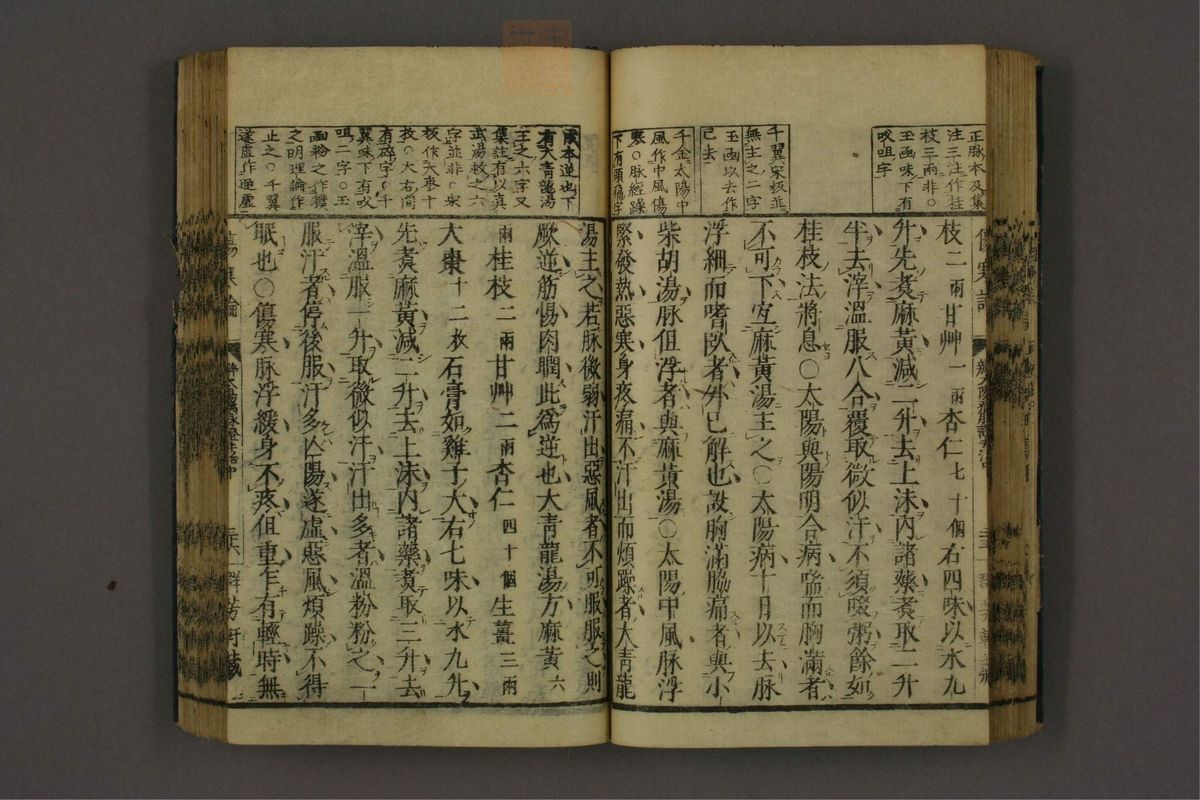 正脉本及集
注三注作桂
枝三兩非○
玉函味下有
㕮咀字
千翼宋板並
無主之二字
玉函以去作
已去
千金太陽中
風作中風傷
寒○脉經躁
下有頭痛字
枝二兩甘艸一兩杏仁七十個右四味以水九
升先煮麻黃減二升去上沫內諸藥煮取二升
半去滓溫服八合覆取微似汗不須啜粥餘如
桂枝法將息○太陽與陽明合病喘而胸滿者
不可下宜麻黃湯主之○太陽病十日以去脉
浮細而嗜臥者外已解也設胸滿脇痛者與小
柴胡湯脉但浮者與麻黃湯○太陽中風脉浮
緊發熱惡寒身疼痛不汗出而煩躁者大青龍
成本逆也下
有大青龍湯
主之六字又
集註有以真
武湯救之六
字並非○宋
板作大棗十
枚○大右間
有碎字○千
翼味下有㕮
咀二字○玉
函粉之作撲
之明理論作
止之○千翼
遂虛作逆虛
湯主之若脉微弱汗出惡風者不可服服之則
厥逆筋惕肉瞤此爲逆也大青龍湯方麻黃六
兩桂枝二兩甘艸二兩杏仁四十個生薑三兩
大棗十二枚石膏如雞子大右七味以水九升
先煮麻黃減二升去上沫內諸藥煮取三升去
滓溫服一升取微似汗汗出多者溫粉粉之一
服汗者停後服汗多亡陽遂虛惡風煩躁不得
眠也○傷寒脉浮緩身不疼但重乍有輕時無
傷寒論